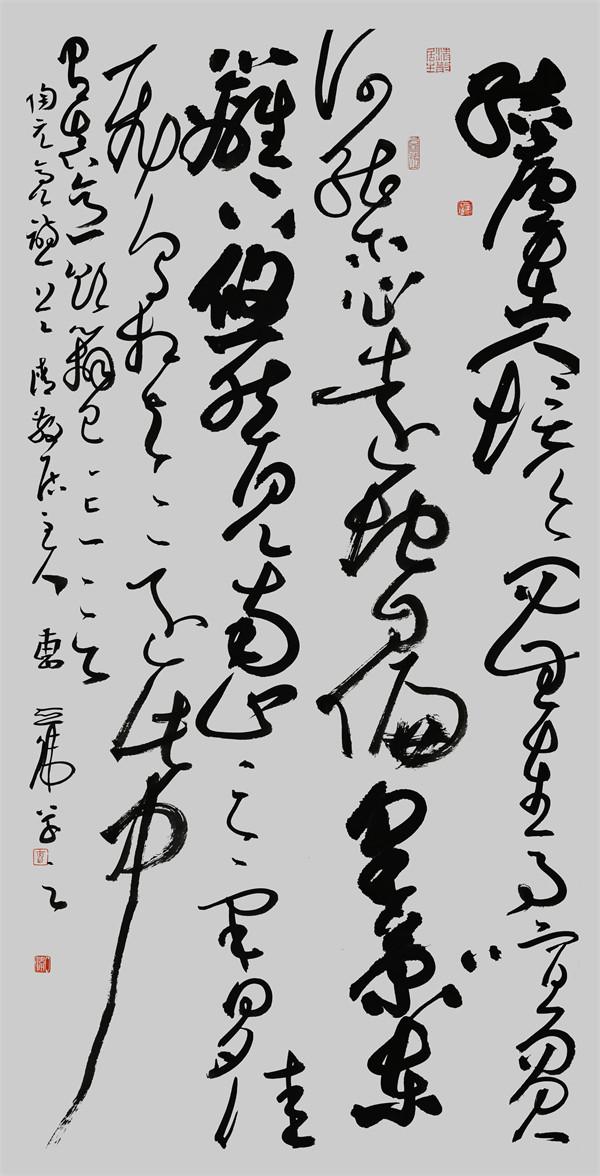 結廬在人境而無車馬喧問君
何能爾心遠地自偏采菊東
籬下悠然見南山山氣日夕佳
飛鳥相與還此中
有真意欲辯已忘言
陶元亮詩 居主人